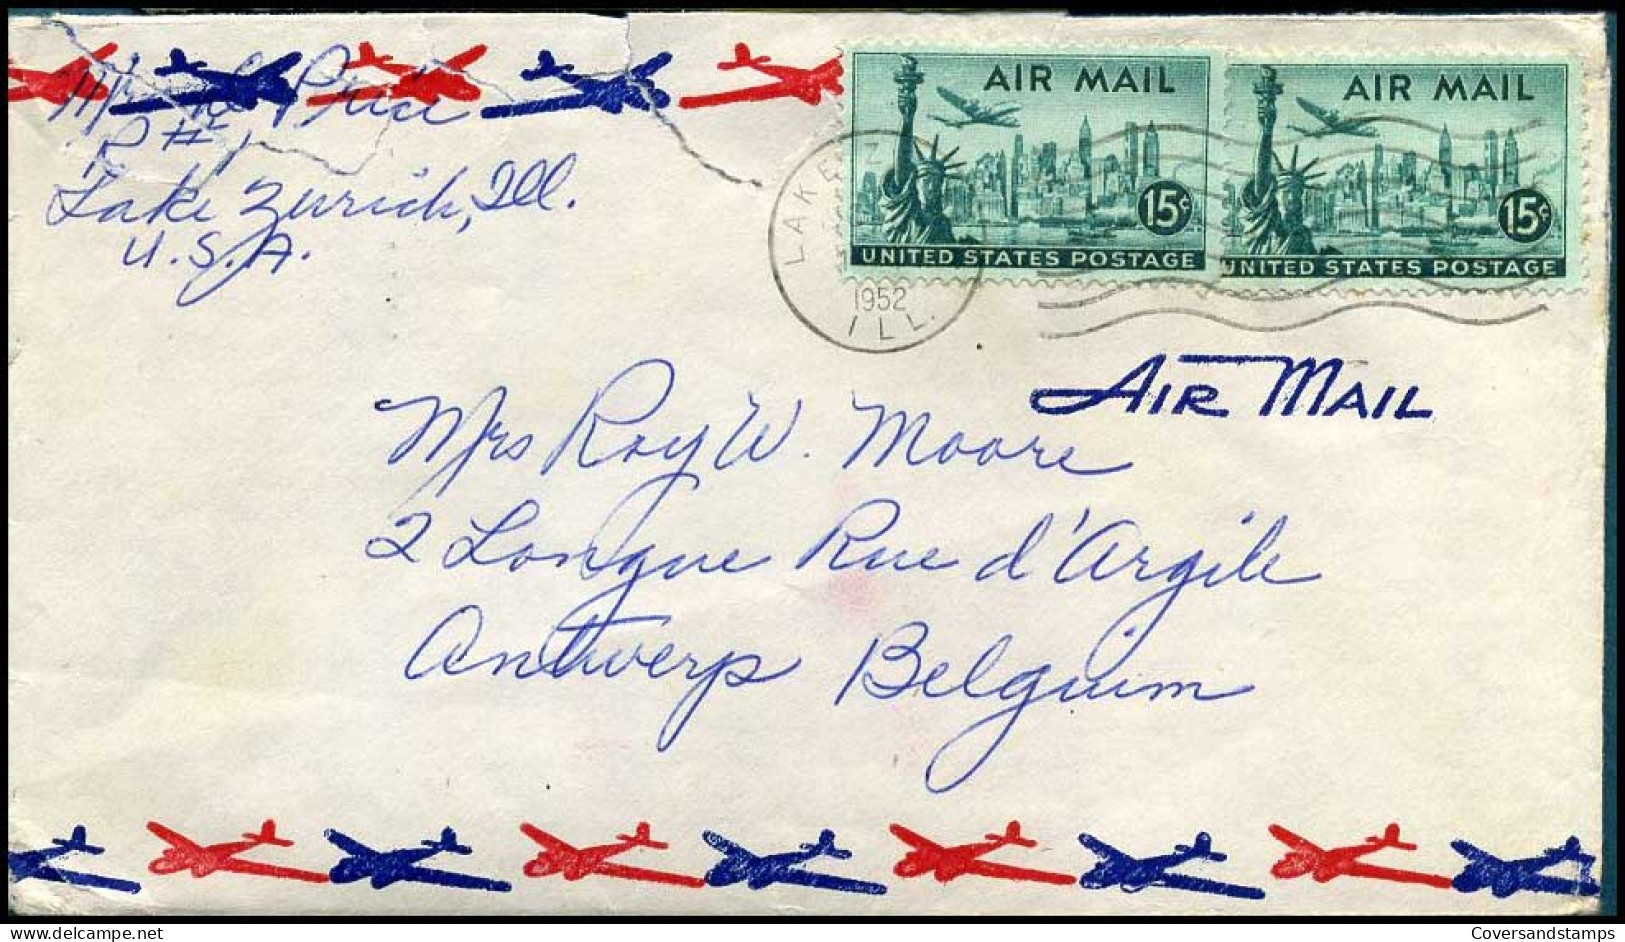 Price
Lake Zurich, Ill.
U.S.A.
AIR MAIL
15¢
UNITED STATES POSTAGE
AIR MAIL
15¢
UNITED STATES POSTAGE
LAKE Z
1952
ILL.
AIR MAIL
Mrs Roy W. Moore
2 Longue Rue d'Argile
Antwerp Belgium
delcampe.net
Coversandstamps